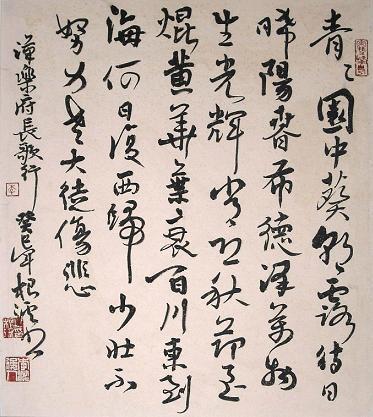 青〻園中葵朝〻露待日
晞陽春布德澤萬物
生光輝常恐秋節至
焜黄華葉衰百川東到
海何日復西歸少壯不
努力老大徒傷悲
漢樂府長歌行 癸巳年根